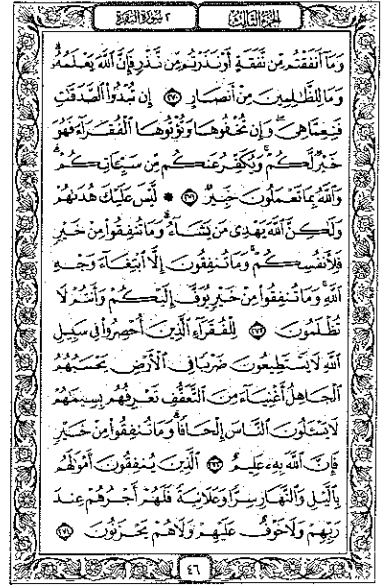 ٢ سورة البقرة الجزء الثالث
وَمَآ أَنفَقْتُم مِّن نَّفَقَةٍ أَوْ نَذَرْتُم مِّن نَّذْرٍ فَإِنَّ ٱللَّهَ يَعْلَمُهُۥ
وَمَا لِلظَّٰلِمِينَ مِنْ أَنصَارٍ ۝٢٧٠ إِن تُبْدُوا۟ ٱلصَّدَقَٰتِ
فَنِعِمَّا هِىَ ۖ وَإِن تُخْفُوهَا وَتُؤْتُوهَا ٱلْفُقَرَآءَ فَهُوَ
خَيْرٌ لَّكُمْ ۚ وَيُكَفِّرُ عَنكُم مِّن سَيِّـَٔاتِكُمْ ۗ
وَٱللَّهُ بِمَا تَعْمَلُونَ خَبِيرٌ ۝٢٧١ ۞ لَّيْسَ عَلَيْكَ هُدَىٰهُمْ
وَلَٰكِنَّ ٱللَّهَ يَهْدِى مَن يَشَآءُ ۗ وَمَا تُنفِقُوا۟ مِنْ خَيْرٍ
فَلِأَنفُسِكُمْ ۚ وَمَا تُنفِقُونَ إِلَّا ٱبْتِغَآءَ وَجْهِ
ٱللَّهِ ۚ وَمَا تُنفِقُوا۟ مِنْ خَيْرٍ يُوَفَّ إِلَيْكُمْ وَأَنتُمْ لَا
تُظْلَمُونَ ۝٢٧٢ لِلْفُقَرَآءِ ٱلَّذِينَ أُحْصِرُوا۟ فِى سَبِيلِ
ٱللَّهِ لَا يَسْتَطِيعُونَ ضَرْبًا فِى ٱلْأَرْضِ يَحْسَبُهُمُ
ٱلْجَاهِلُ أَغْنِيَآءَ مِنَ ٱلتَّعَفُّفِ تَعْرِفُهُم بِسِيمَٰهُمْ
لَا يَسْـَٔلُونَ ٱلنَّاسَ إِلْحَافًا ۗ وَمَا تُنفِقُوا۟ مِنْ خَيْرٍ
فَإِنَّ ٱللَّهَ بِهِۦ عَلِيمٌ ۝٢٧٣ ٱلَّذِينَ يُنفِقُونَ أَمْوَٰلَهُم
بِٱلَّيْلِ وَٱلنَّهَارِ سِرًّا وَعَلَانِيَةً فَلَهُمْ أَجْرُهُمْ عِندَ
رَبِّهِمْ وَلَا خَوْفٌ عَلَيْهِمْ وَلَا هُمْ يَحْزَنُونَ ۝٢٧٤
٤٦